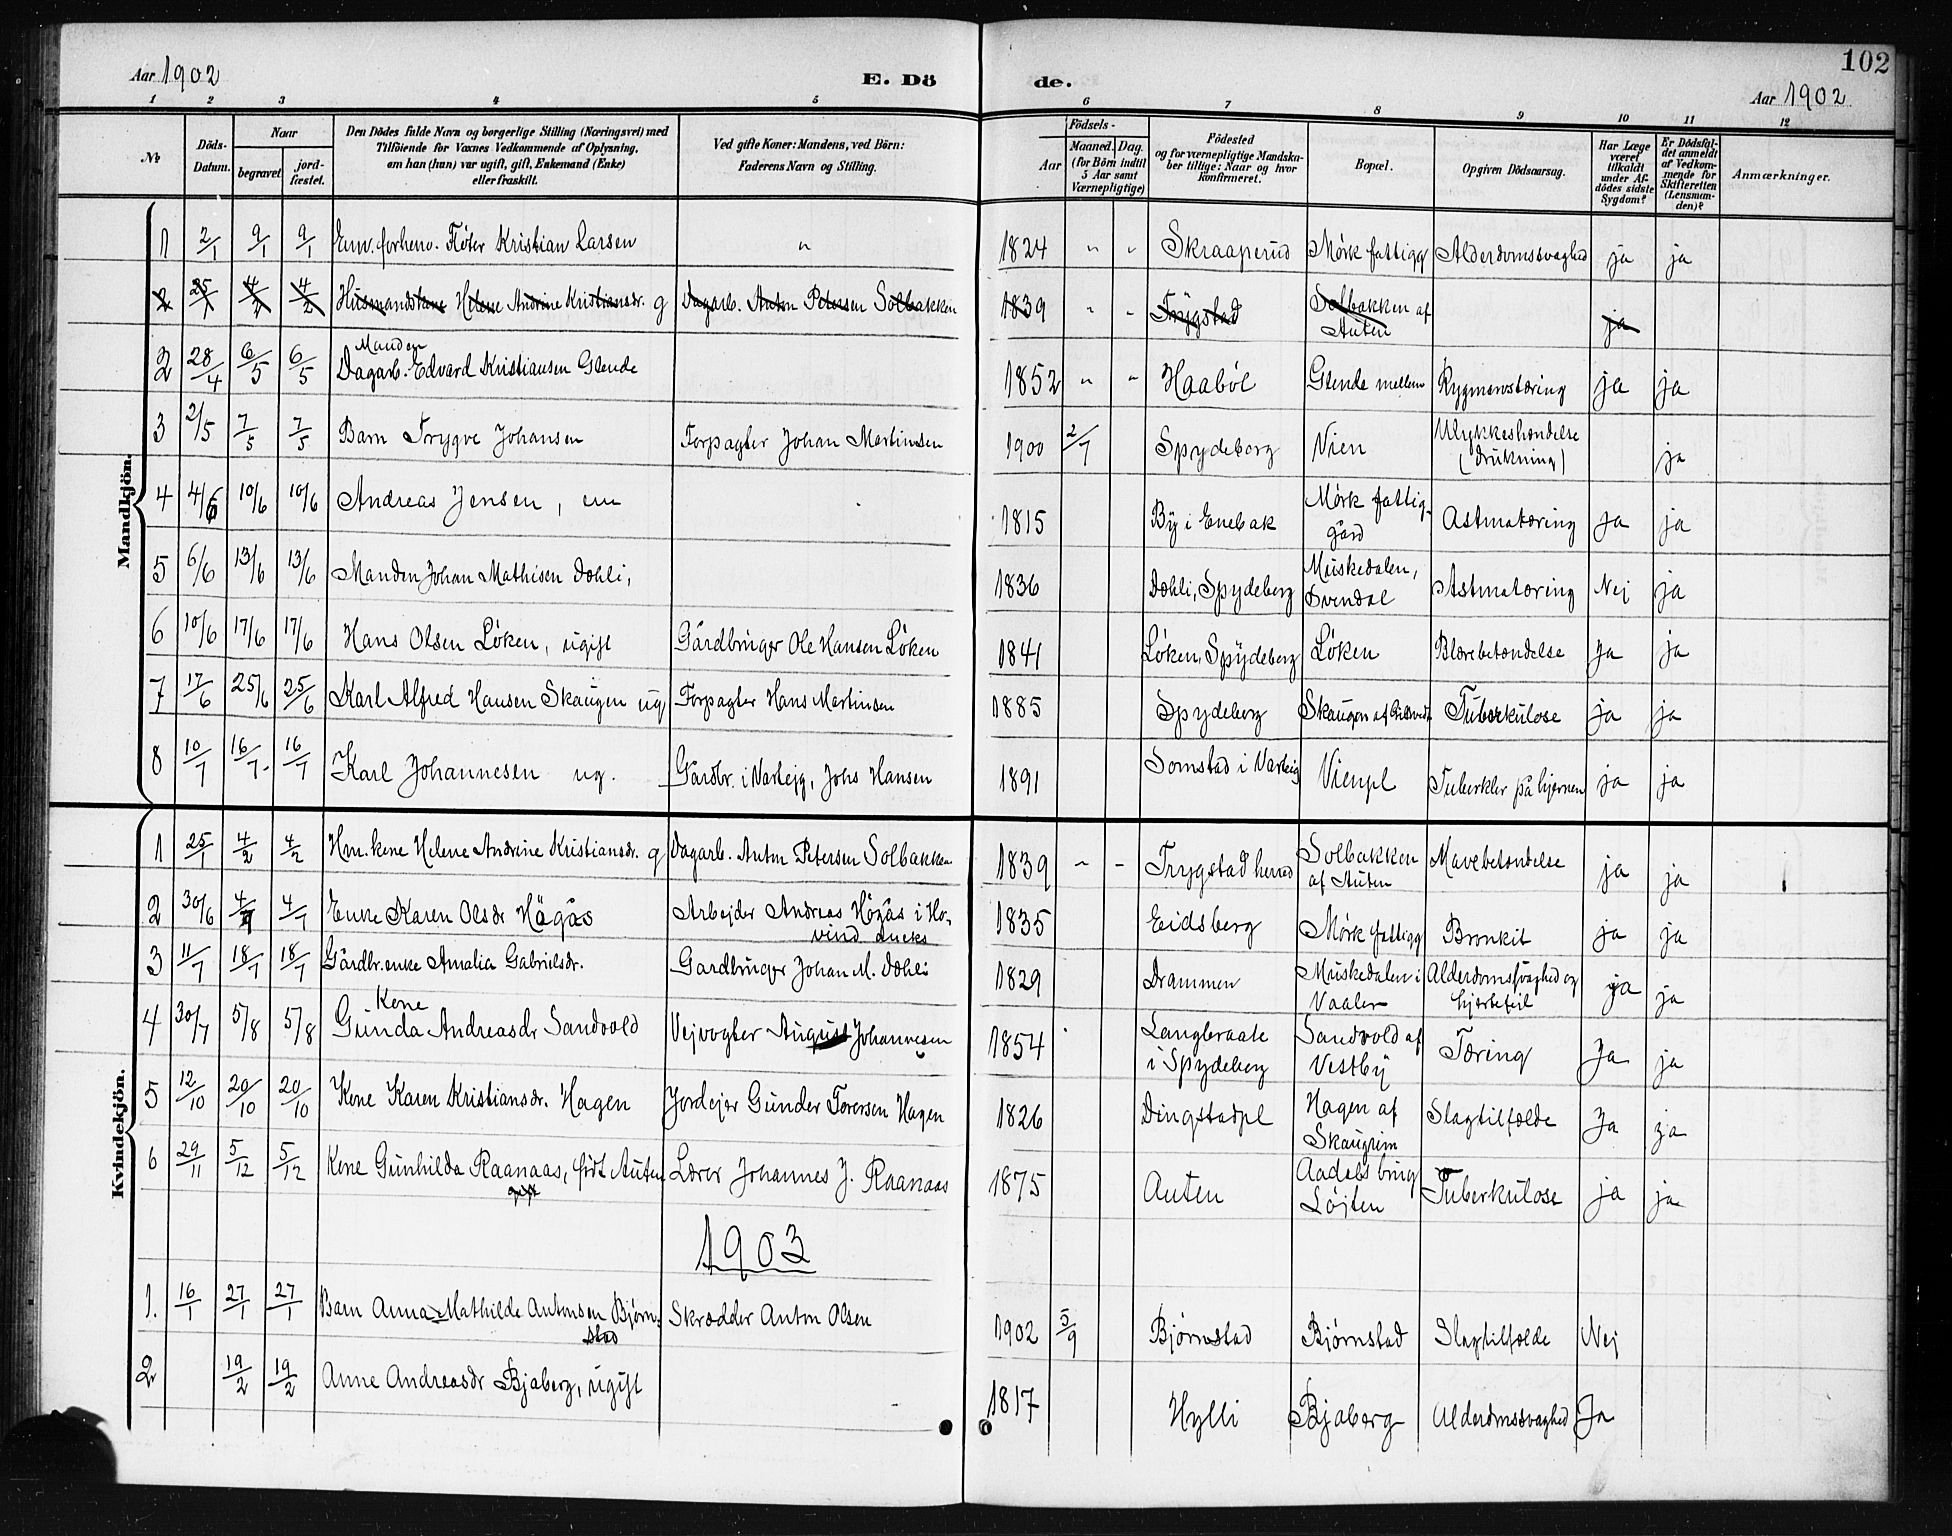 Aar 1902 E. Dö de. 102
Aar 1902
1 2 3 4 5 6 7 8 9 10 11 12
№
Döds-Datum.
Naar
begravet
jord-fæstet.
Den Dödes fulde Navn og borgerlige Stilling (Næringsvei) med
Tilföiende for Voxnes Vedkommende af Oplysning,
om han (hun) var ugift, gift, Enkemand (Enke)
eller fraskilt.
Ved gifte Koner: Mandens, ved Börn:
Faderens Navn og Stilling.
Födsels-
Aar
Maaned. Dag.
(for Börn indtil
5 Aar samt
Værnepligtige)
Födested
og for værnepligtige Mandska-
ber tillige: Naar og hvor
konfirmeret.
Bopæl.
Opgiven Dödsaarsag.
Har Læge
været
tilkaldt
under Af-
dödes sidste
Sygdom?
Er Dödsfal-
det anmeldt
af Vedkom-
mende for
Skifteretten
(Lensman-
den)?
Anmærkninger.
Mandkjön.
1 2/1 9/1 9/1 Enm. forhenv. Fløter Kristian Larsen " 1824 " " Skraaperud Mørk fattigg Alderdomssvaghed ja ja
2 25/1 4/2 4/2 Husmandskane Helene Andrine Kristiansdr. g Dagarb. Anton Petersen Solbakken 1839 " " Trygstad Solbakken af
Auten ja
Manden
2 28/4 6/5 6/5 Dagarb. Edvard Kristiansen Glende 1852 " " Haabøl Glende mellem Rygmarvstæring ja ja
3 2/5 7/5 7/5 Barn Trygve Johansen Forpagter Johan Martinsen 1900 2/7 Spydeberg Vien Ulykkeshændelse
(drukning) ja
4 4/6 10/6 10/6 Andreas Jensen, em 1815 By i Enebak Mørk fattig-
gård Astmatæring ja ja
5 6/6 13/6 13/6 Manden Johan Mathisen Dæhli, 1836 Dæhli, Spydeberg Muskedalen,
Svendal Astmatæring Nej ja
6 10/6 17/6 17/6 Hans Olsen Løken, ugift Gårdbruger Ole Hansen Løken 1841 Løken, Spydeberg Løken Blærebetændelse Ja ja
7 17/6 25/6 25/6 Karl Alfred Hansen Skaugen ug Forpagter Hans Martinsen 1885 Spydeberg Skaugen af Tuberkulose ja ja
8 10/7 16/7 16/7 Karl Johannesen ug. Gårdbr. i Varteig, Johs Hansen 1891 Somstad i Varteig Vienpl Tuberkler på hjernen ja ja
Kvindekjön.
1 25/1 4/2 4/2 Hm. kone Helene Andrine Kristiansdr. g Dagarb. Anton Petersen Solbakken 1839 " " Trygstad herred Solbakken
af Auten Mavebetændelse ja ja
2 30/6 4/7 4/7 Enke Karen Olsdr Högås Arbejder Andreas Högås i Ho-
vind 1835 Eidsberg Mørk fattigg Bronkit ja ja
3 11/7 18/7 18/7 Gårdbr.enke Amalia Gabrielsdr. Gårdbruger Johan M. Dæhli 1829 Drammen Muskedalen i
Vaaler Alderdomssvaghed og
hjertefeil ja ja
Kone
4 30/7 5/8 5/8 Gunda Andreasdr Sandvold Vejvogter August Johannesen 1854 Langbraate
i Spydeberg Sandvold af
Vestby Tæring Ja ja
5 12/10 20/10 20/10 Kone Karen Kristiansdr. Hagen Jordejer Gunder Torersen Hagen 1826 Dingstadpl Hagen af
Skaugrim Slagtilfælde Ja ja
6 29/11 5/12 5/12 Kone Gunhilda Raanaas, født Auten Lærer Johannes J. Raanaas 1875 Auten Aadals brug
Løjten Tuberkulose ja ja
gift
1903
1. 16/1 27/1 27/1 Barn Anna Mathilde Antonsen Bjørn-
stad Skrædder Anton Olsen 1902 5/9 Bjørnstad Bjørnstad Slagtilfælde Nej
2 19/2 19/2 Anne Andreasdr Bjaberg, ugift 1817 Hylli Bjaberg Alderdomssvaghed Ja